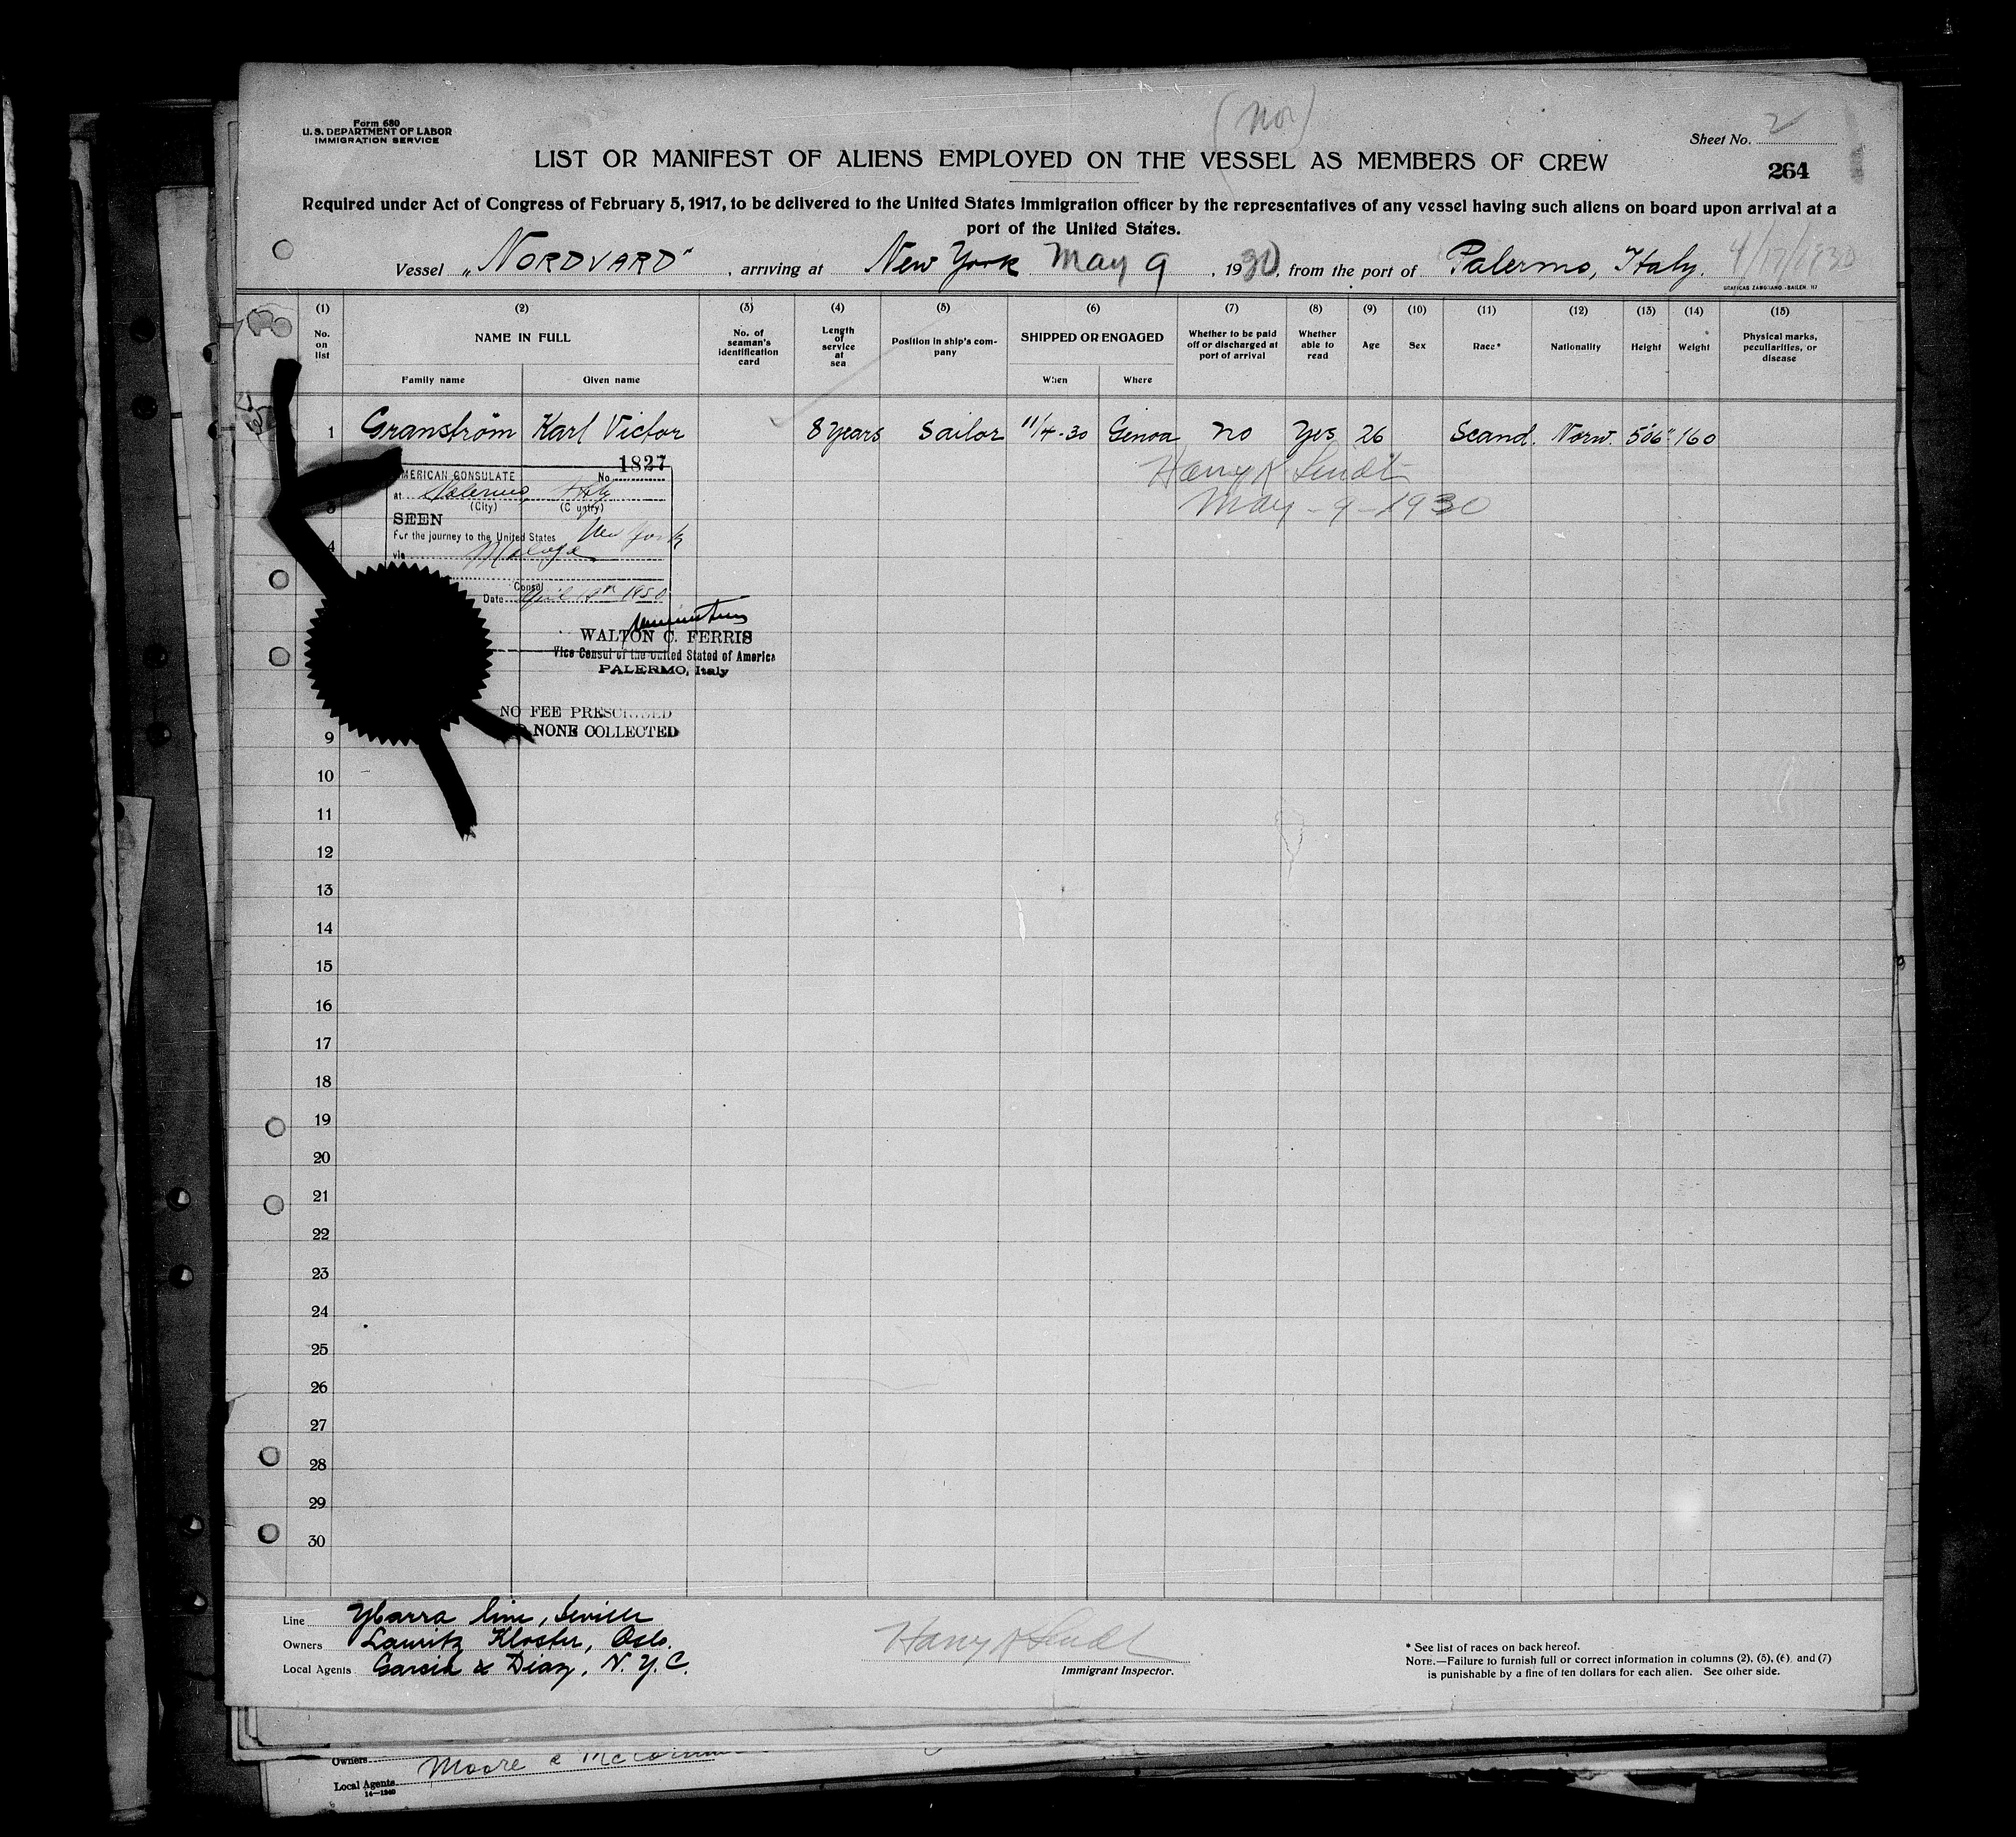 (Nor)
Form 680
U. S. DEPARTMENT OF LABOR
IMMIGRATION SERVICE
Sheet No. 2
LIST OR MANIFEST OF ALIENS EMPLOYED ON THE VESSEL AS MEMBERS OF CREW
264
Required under Act of Congress of February 5, 1917, to be delivered to the United States Immigration officer by the representatives of any vessel having such aliens on board upon arrival at a
port of the United States.
Vessel „NORDVARD", arriving at New York May 9, 1930, from the port of Palermo, Italy.
GRAFICAS ZAMBRANO.-BAILEN. 117
(1) (2) (3) (4) (5) (6) (7) (8) (9) (10) (11) (12) (13) (14) (15)
No. on list NAME IN FULL No. of seaman's identification card Length of service at sea Position in ship's company SHIPPED OR ENGAGED Whether to be paid off or discharged at port of arrival Whether able to read Age Sex Race* Nationality Height Weight Physical marks, peculiarities, or disease
Family name Given name When Where
1 Granström Karl Victor 8 years Sailor 11/4-30 Genoa No Yes 26 Scand. Norw. 5'06" 160
Harry K Lindt
May-9-1930
1827
AMERICAN CONSULATE No.
at Palermo, Italy
(City) (Country)
3
SEEN
For the journey to the United States New York
4
via Malaga
Consul
Date April 1930
WALTON C. FERRIS
Vice Consul of the United Stated of America
PALERMO, Italy
NO FEE PRESCRIBED
NONE COLLECTED
9
10
11
12
13
14
15
16
17
18
19
20
21
22
23
24
25
26
27
28
29
30
Line Ybarra line, Seville
Owners Lauritz Kloster, Oslo.
Local Agents Garcia & Diaz, N.Y.C.
Harry K Lindt
Immigrant Inspector.
* See list of races on back hereof.
NOTE.—Failure to furnish full or correct information in columns (2), (5), (6), and (7)
is punishable by a fine of ten dollars for each alien. See other side.
Owners
Local Agents Moore &
14—1240